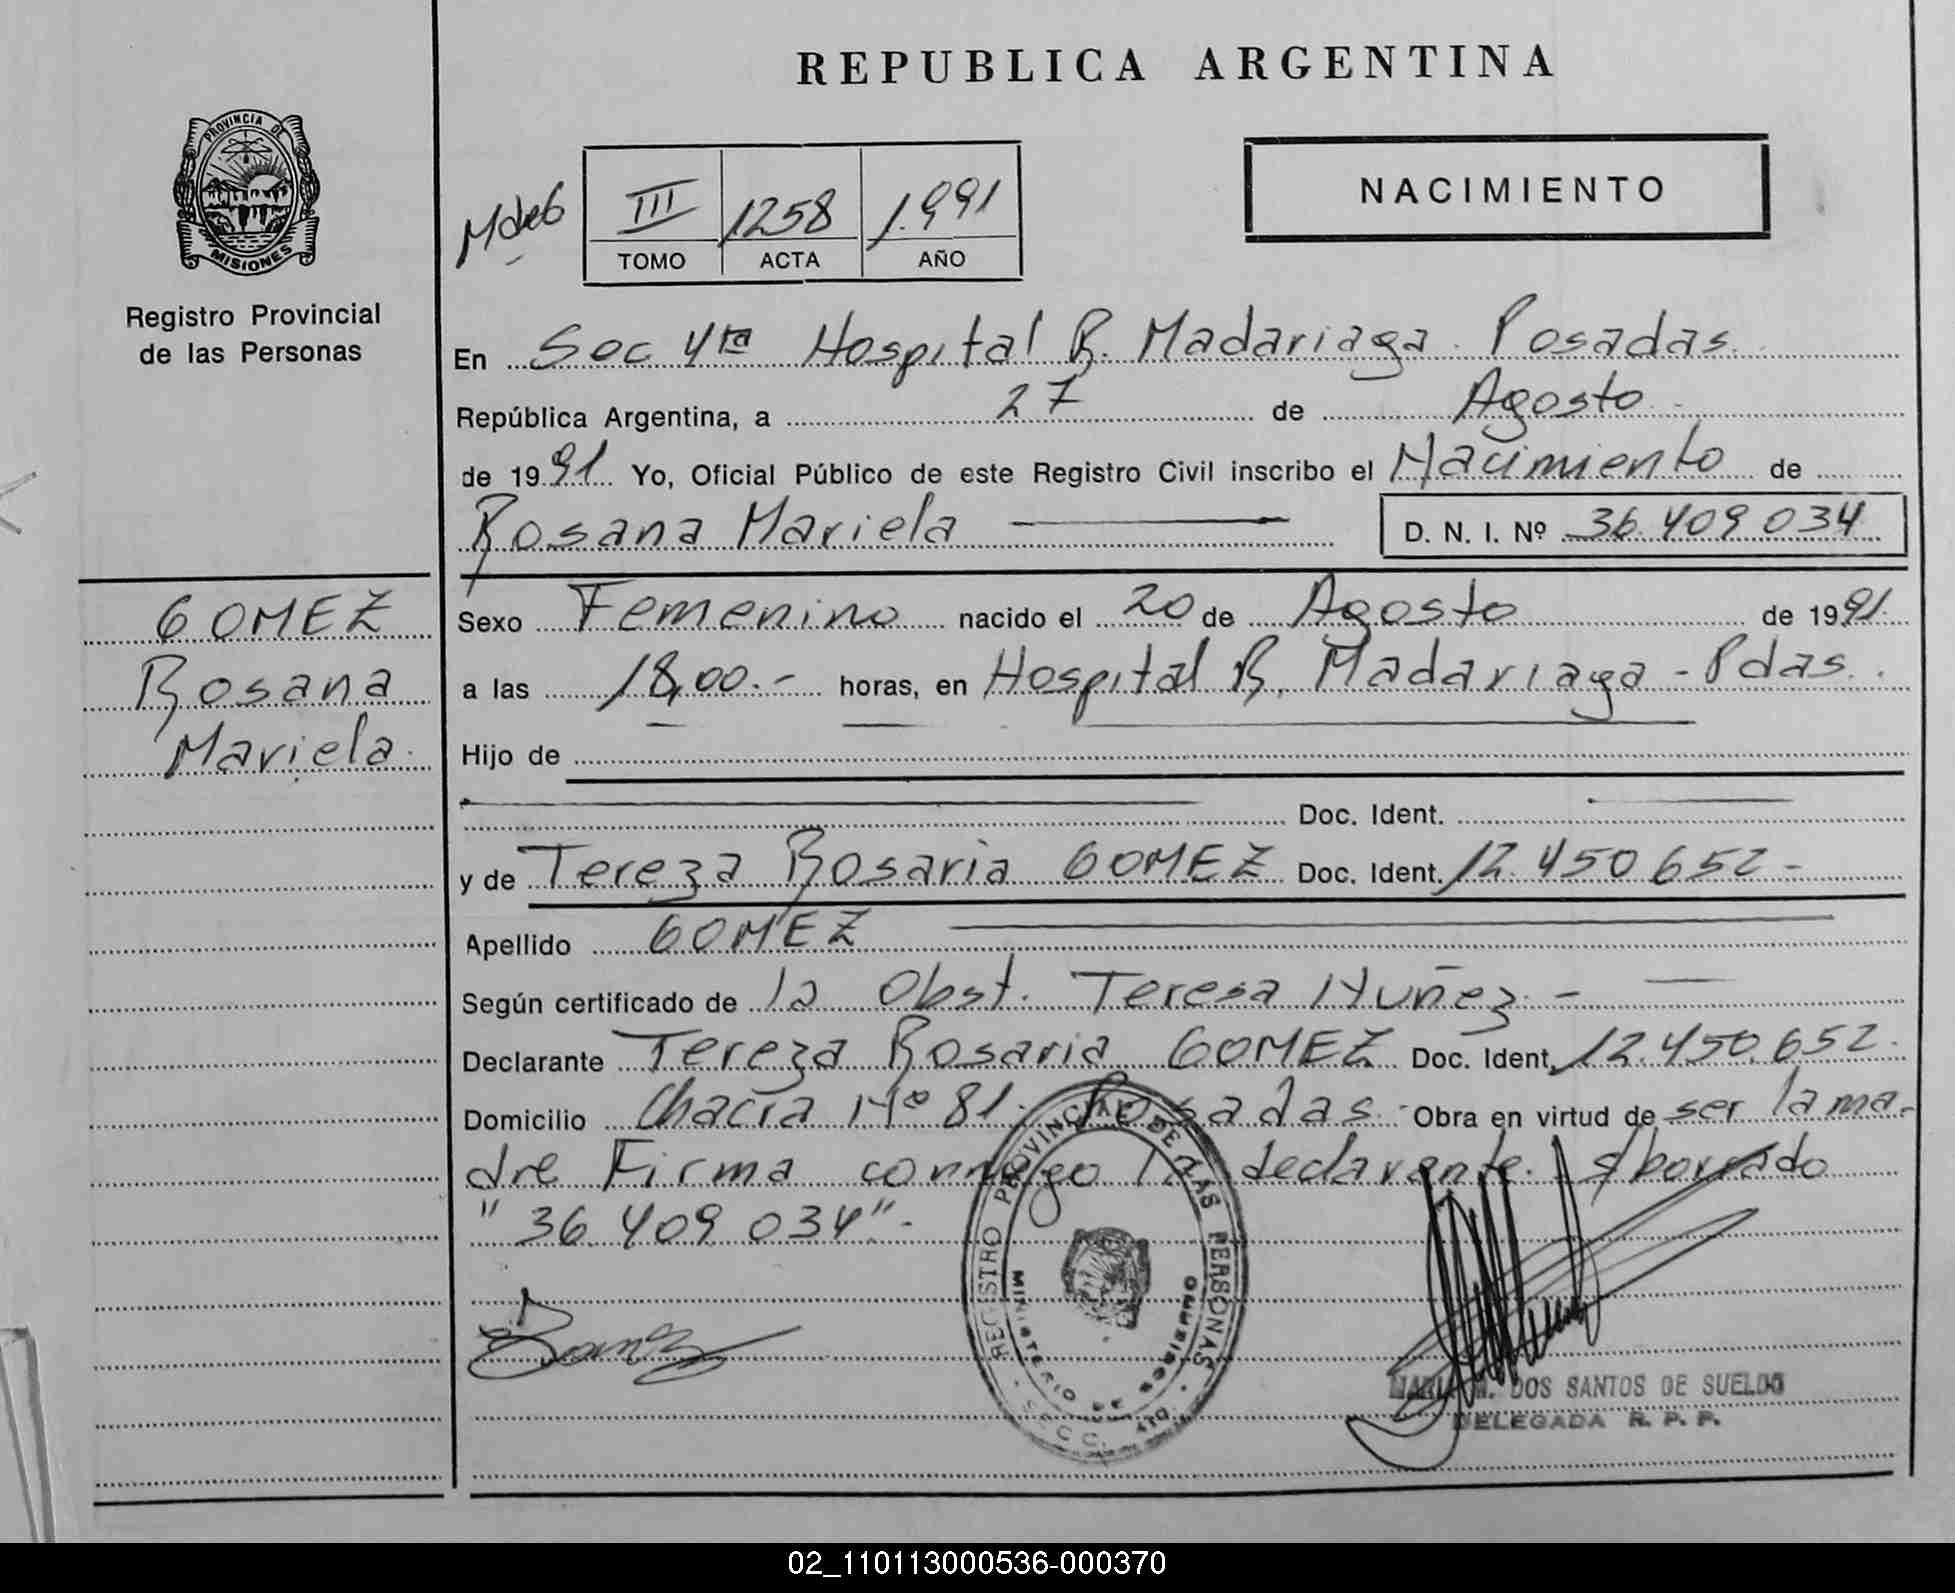 REPUBLICA ARGENTINA
PROVINCIA DE
MISIONES
Registro Provincial
de las Personas
III 1258 1.991
TOMO ACTA AÑO
NACIMIENTO
En Secc 4ta Hospital R. Madariaga. Posadas.
República Argentina, a 27 de Agosto
de 1991. Yo, Oficial Público de este Registro Civil inscribo el Nacimiento de
Rosana Mariela D. N. I. Nº 36.409.034
GOMEZ
Rosana
Mariela.
Sexo Femenino nacido el 20 de Agosto de 1991.
a las 18,00.- horas, en Hospital R. Madariaga - Pdas.
Hijo de
Doc. Ident.
y de Tereza Rosaria GOMEZ Doc. Ident. 12.450.652-
Apellido GOMEZ
Según certificado de la Obst. Teresa Nuñez.-
Declarante Tereza Rosaria GOMEZ Doc. Ident. 12.450.652.
Domicilio Chacra Nº 81. Posadas. Obra en virtud de ser la ma-
dre Firma conmigo la declarante. S/borrado
"36.409.034".-
REGISTRO PROVINCIAL DE LAS PERSONAS
MINISTERIO DE GOBIERNO
SECC. 4ta
DOS SANTOS DE SUELDO
DELEGADA R. P. P.
02_110113000536-000370